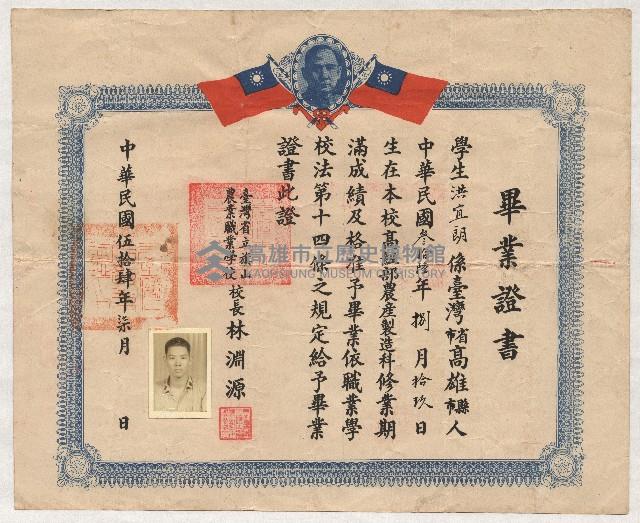 畢業證書
學生洪宜朗係臺灣省市高雄縣市人
中華民國叁年捌月拾玖日
生在本校高農產製造科修業期
滿成績及格予畢業依職業學
校法第十四條之規定給予畢業
證書此證
臺灣省立旗山
農業職業學校校長林淵源
中華民國伍拾肆年柒月 日
高雄市立歷史博物館
KAOHSIUNG MUSEUM OF HISTORY